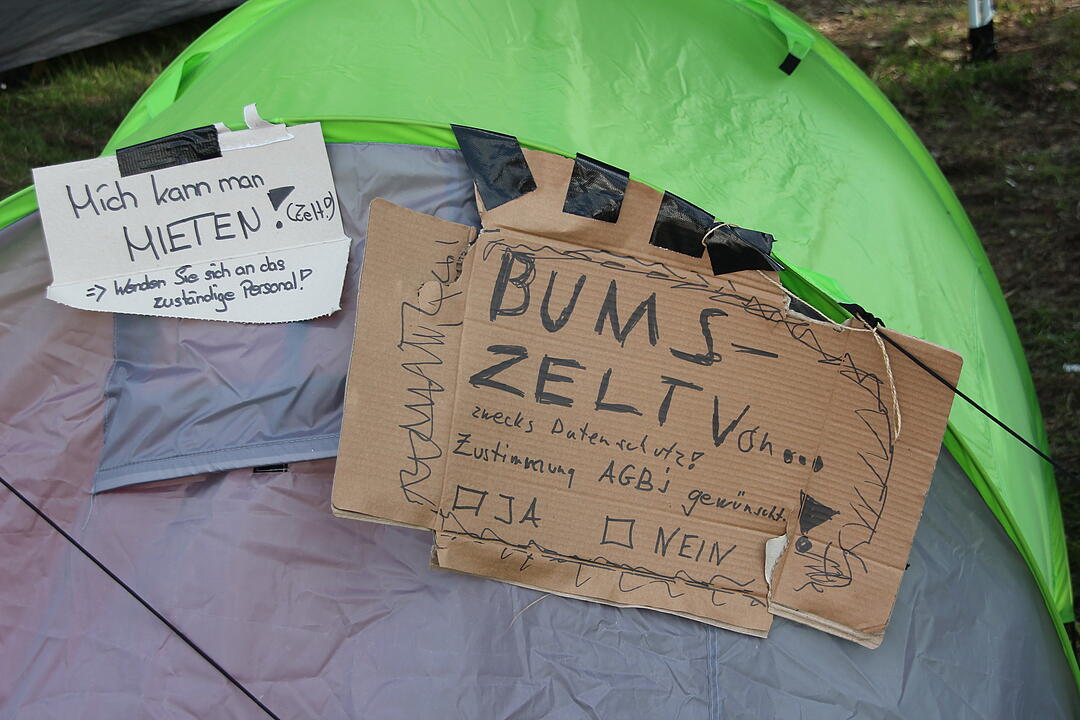 Mich kann man
MIETEN! (Zelt!)
=> Wenden Sie sich an das
zuständige Personal!
BUMS-
ZELT Von...
zwecks Datenschutz?
Zustimmung AGB's gewünscht!
☐ JA ☐ NEIN